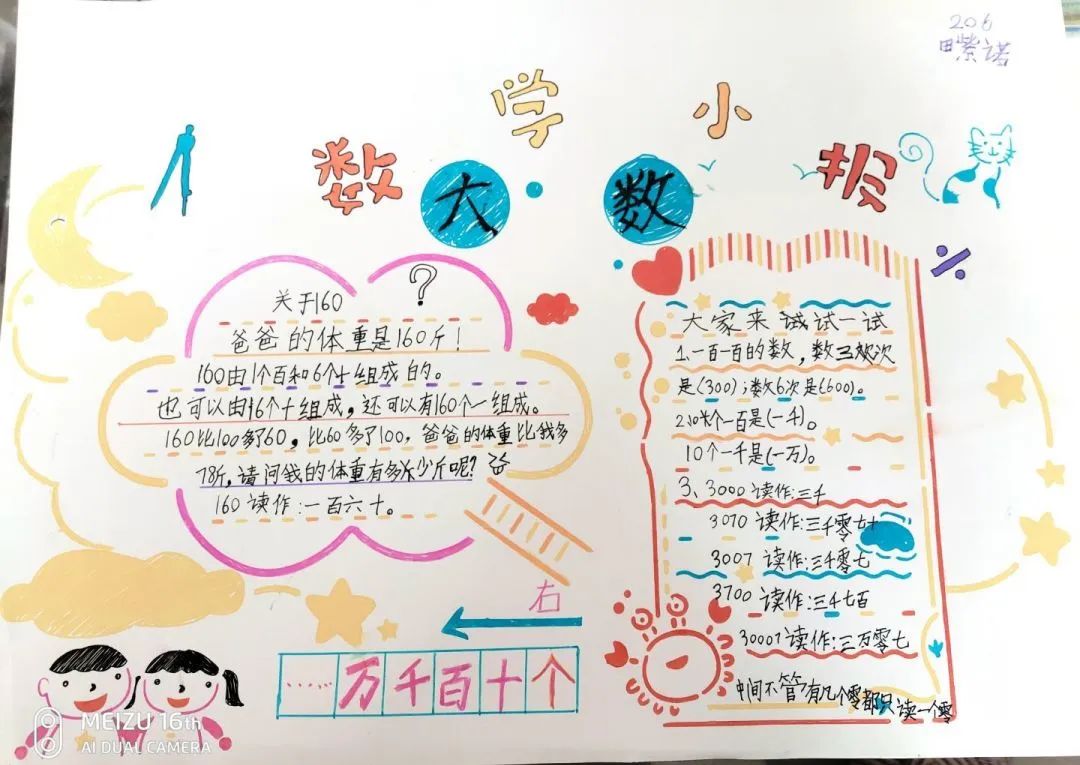 206
田紫诺
数学小报
大数
关于160
?
爸爸的体重是160斤!
160由1个百和6个十组成的。
也可以由16个十组成,还可以有160个一组成。
160比100多了60,比60多了100,爸爸的体重比我多
78斤,请问我的体重有多少斤呢?
160读作:一百六十。
右
……万千百十个
大家来试试一试
1、一百一百的数,数三次
是(300);数6次是(600)。
2、10个一百是(一千)。
10个一千是(一万)。
3、3000读作:三千
3070读作:三千零七十
3007读作:三千零七
3700读作:三千七百
30007读作:三万零七
中间不管有几个零都只读一个零
MEIZU 16th
AI DUAL CAMERA